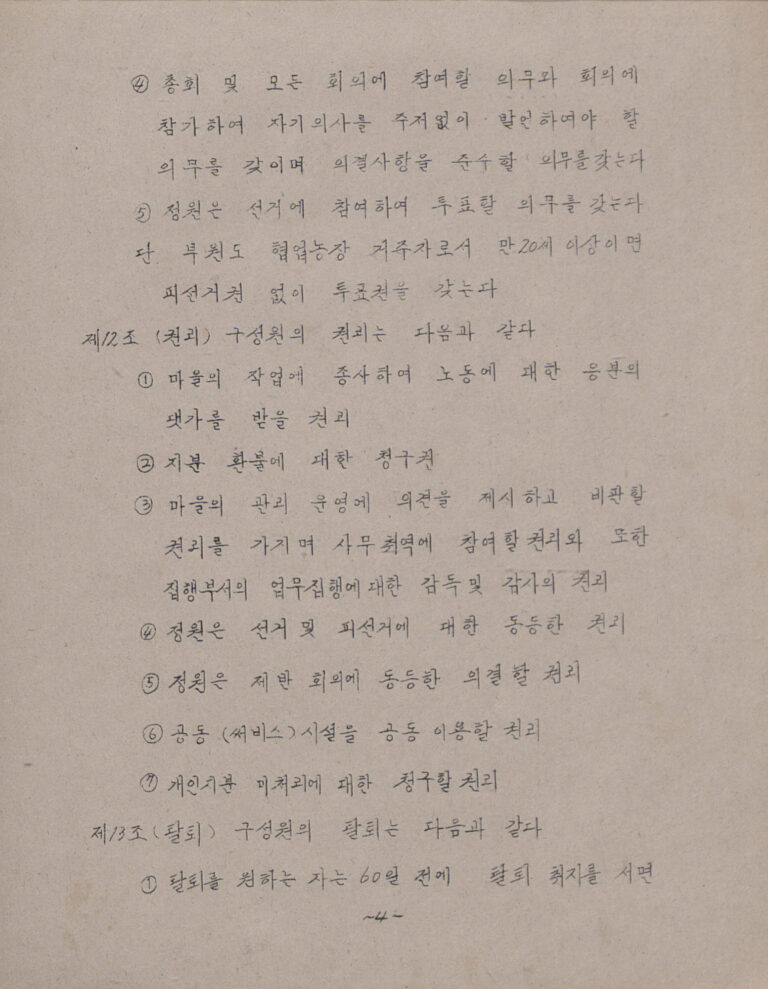 ④ 총회 및 모든 회의에 참여할 의무와 회의에
참가하여 자기의사를 주저없이 발언하여야 할
의무를 갖이며 의결사항을 준수할 의무를갖는다
⑤ 정원은 선거에 참여하여 투표할 의무를 갖는다
단 부원도 협업농장 거주자로서 만20세 이상이면
피선거권 없이 투표권을 갖는다
제12조 (권리) 구성원의 권리는 다음과 같다
① 마을의 작업에 종사하여 노동에 대한 응분의
댓가를 받을 권리
② 지분 환불에 대한 청구권
③ 마을의 관리 운영에 의견을 제시하고 비판할
권리를 가지며 사무취역에 참여할권리와 또한
집행부서의 업무집행에대한 감독및 감사의 권리
④ 정원은 선거 및 피선거에 대한 동등한 권리
⑤ 정원은 제반 회의에 동등한 의결할 권리
⑥ 공동 (써비스) 시설을 공동 이용할 권리
⑦ 개인지분 미처리에 대한 청구할 권리
제13조 (탈퇴) 구성원의 탈퇴는 다음과 같다
① 탈퇴를 원하는 자는 60일 전에 탈퇴 취지를 서면
~4~